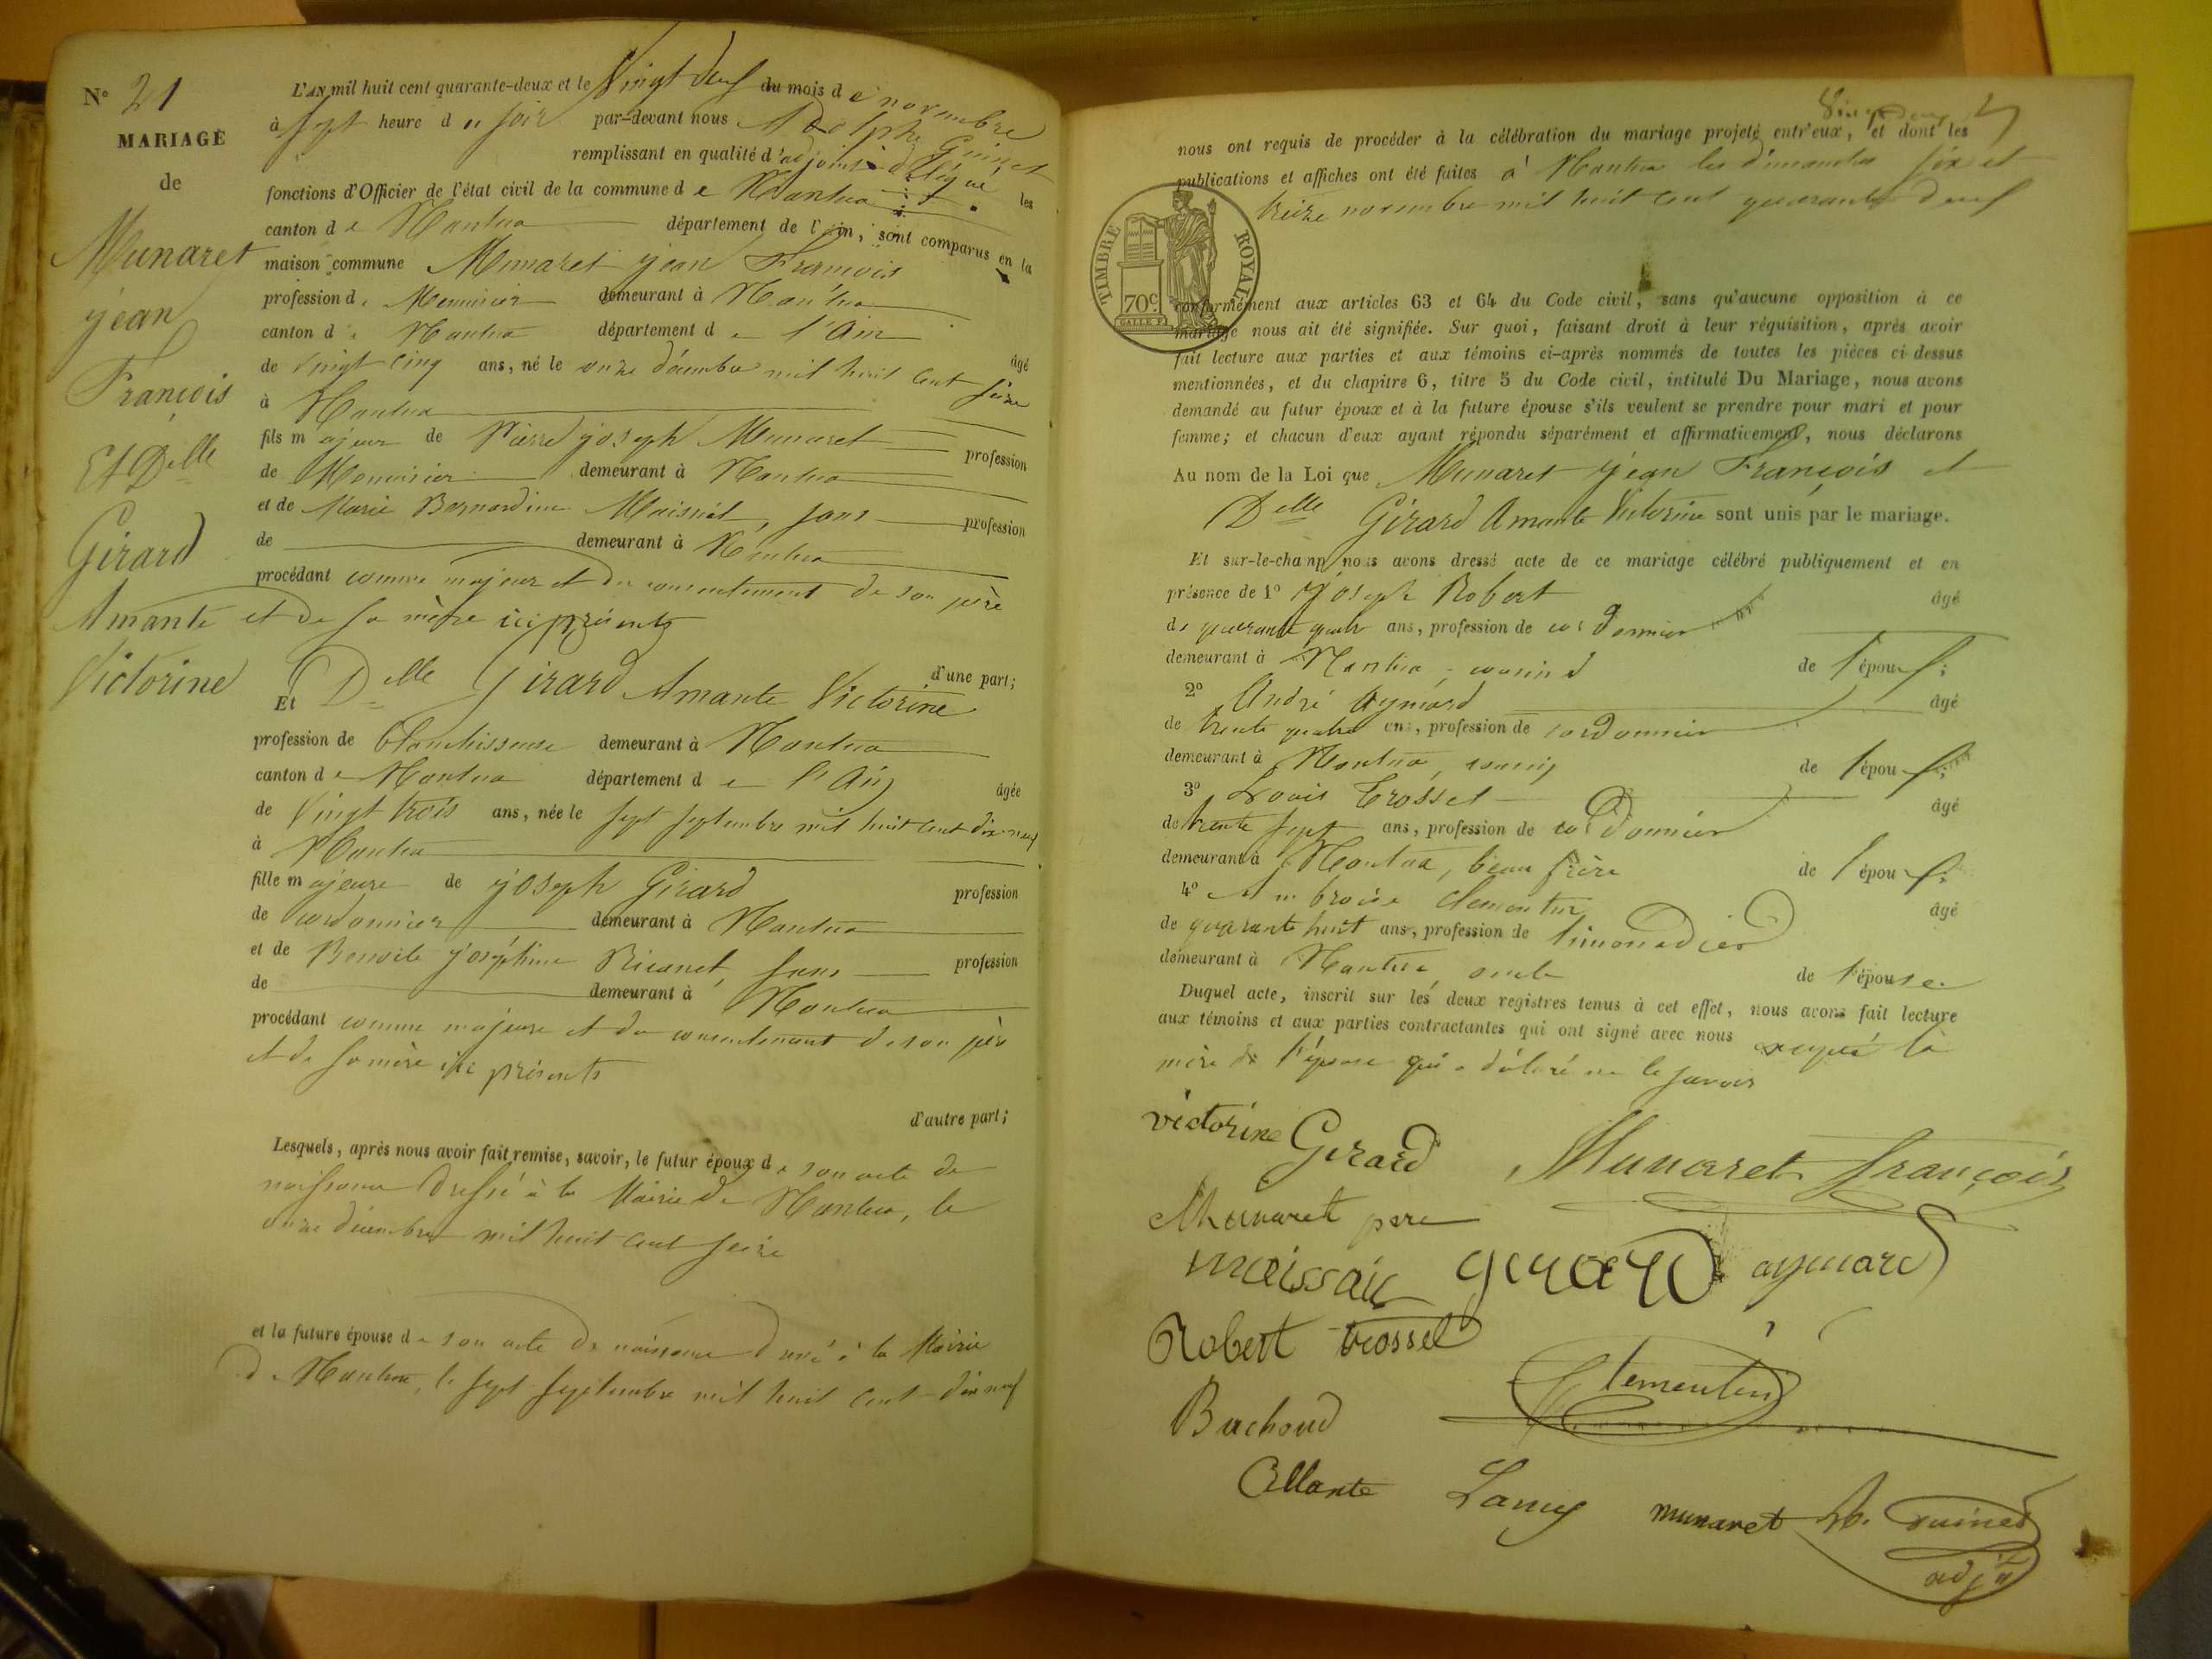 N° 21
MARIAGE
de
Munaret
jean
François
Et Delle
Girard
Amante
Victorine
L'AN mil huit cent quarante-deux et le Vingt deux du mois de novembre
à sept heure du soir par-devant nous Adolphe Guinet
remplissant en qualité d'adjoint délégué les
fonctions d'Officier de l'état civil de la commune de Nantua
canton de Nantua département de l'ain, sont comparus en la
maison commune Munaret jean François
profession de Menuisier demeurant à Nantua
canton de Nantua département de l'Ain âgé
de vingt cinq ans, né le onze décembre mil huit cent seize
à Nantua
fils majeur de Pierre joseph Munaret profession
de Menuisier demeurant à Nantua
et de Marie Bernardine Maissiat, sans profession
de demeurant à Nantua
procédant comme majeur et du consentement de son père
et de sa mère ici présents
d'une part;
Et Delle Girard Amante Victorine
profession de blanchisseuse demeurant à Nantua
canton de Nantua département de l'Ain âgée
de Vingt trois ans, née le sept septembre mil huit cent dix neuf
à Nantua
fille majeure de joseph Girard profession
de cordonnier demeurant à Nantua
et de Benoite joséphine sans profession
de demeurant à Nantua
procédant comme majeure et du consentement de son père
et de sa mère ici présents
d'autre part;
Lesquels, après nous avoir fait remise, savoir, le futur époux de son acte de
naissance dressé à la Mairie de Nantua, le
onze décembre mil huit cent seize
et la future épouse de son acte de naissance dressé à la Mairie
de Nantua, le sept septembre mil huit cent dix neuf
Vingt deux
nous ont requis de procéder à la célébration du mariage projeté entr'eux, et dont les
publications et affiches ont été faites à Nantua les dimanches six et
treize novembre mil huit cent quarante deux
TIMBRE ROYAL
70c.
conformément aux articles 63 et 64 du Code civil, sans qu'aucune opposition à ce
mariage nous ait été signifiée. Sur quoi, faisant droit à leur réquisition, après avoir
fait lecture aux parties et aux témoins ci-après nommés de toutes les pièces ci dessus
mentionnées, et du chapitre 6, titre 5 du Code civil, intitulé Du Mariage, nous avons
demandé au futur époux et à la future épouse s'ils veulent se prendre pour mari et pour
femme; et chacun d'eux ayant répondu séparément et affirmativement, nous déclarons
Au nom de la Loi que Munaret jean François et
Delle Girard Amante Victorine sont unis par le mariage.
Et sur-le-champ nous avons dressé acte de ce mariage célébré publiquement et en
présence de 1° joseph Robert âgé
de quarante quatre ans, profession de cordonnier
demeurant à Nantua, cousin de l'épouse
2° André Aymard âgé
de trente quatre ans, profession de cordonnier
demeurant à Nantua, cousin de l'épouse
3° Louis Trosset âgé
de trente sept ans, profession de cordonnier
demeurant à Nantua, beau frère de l'épouse
4° Ambroise Clementin âgé
de quarante huit ans, profession de limonadier
demeurant à Nantua, oncle de l'épouse.
Duquel acte, inscrit sur les deux registres tenus à cet effet, nous avons fait lecture
aux témoins et aux parties contractantes qui ont signé avec nous excepté la
mère de l'épouse qui a déclaré ne le savoir
victorine Girard Munaret françois
Munaret pere
maissiat girard aymard
Robert trosset
Clementin
Buchoud
Allante Lamy munaret Ad. Guinet
adjt